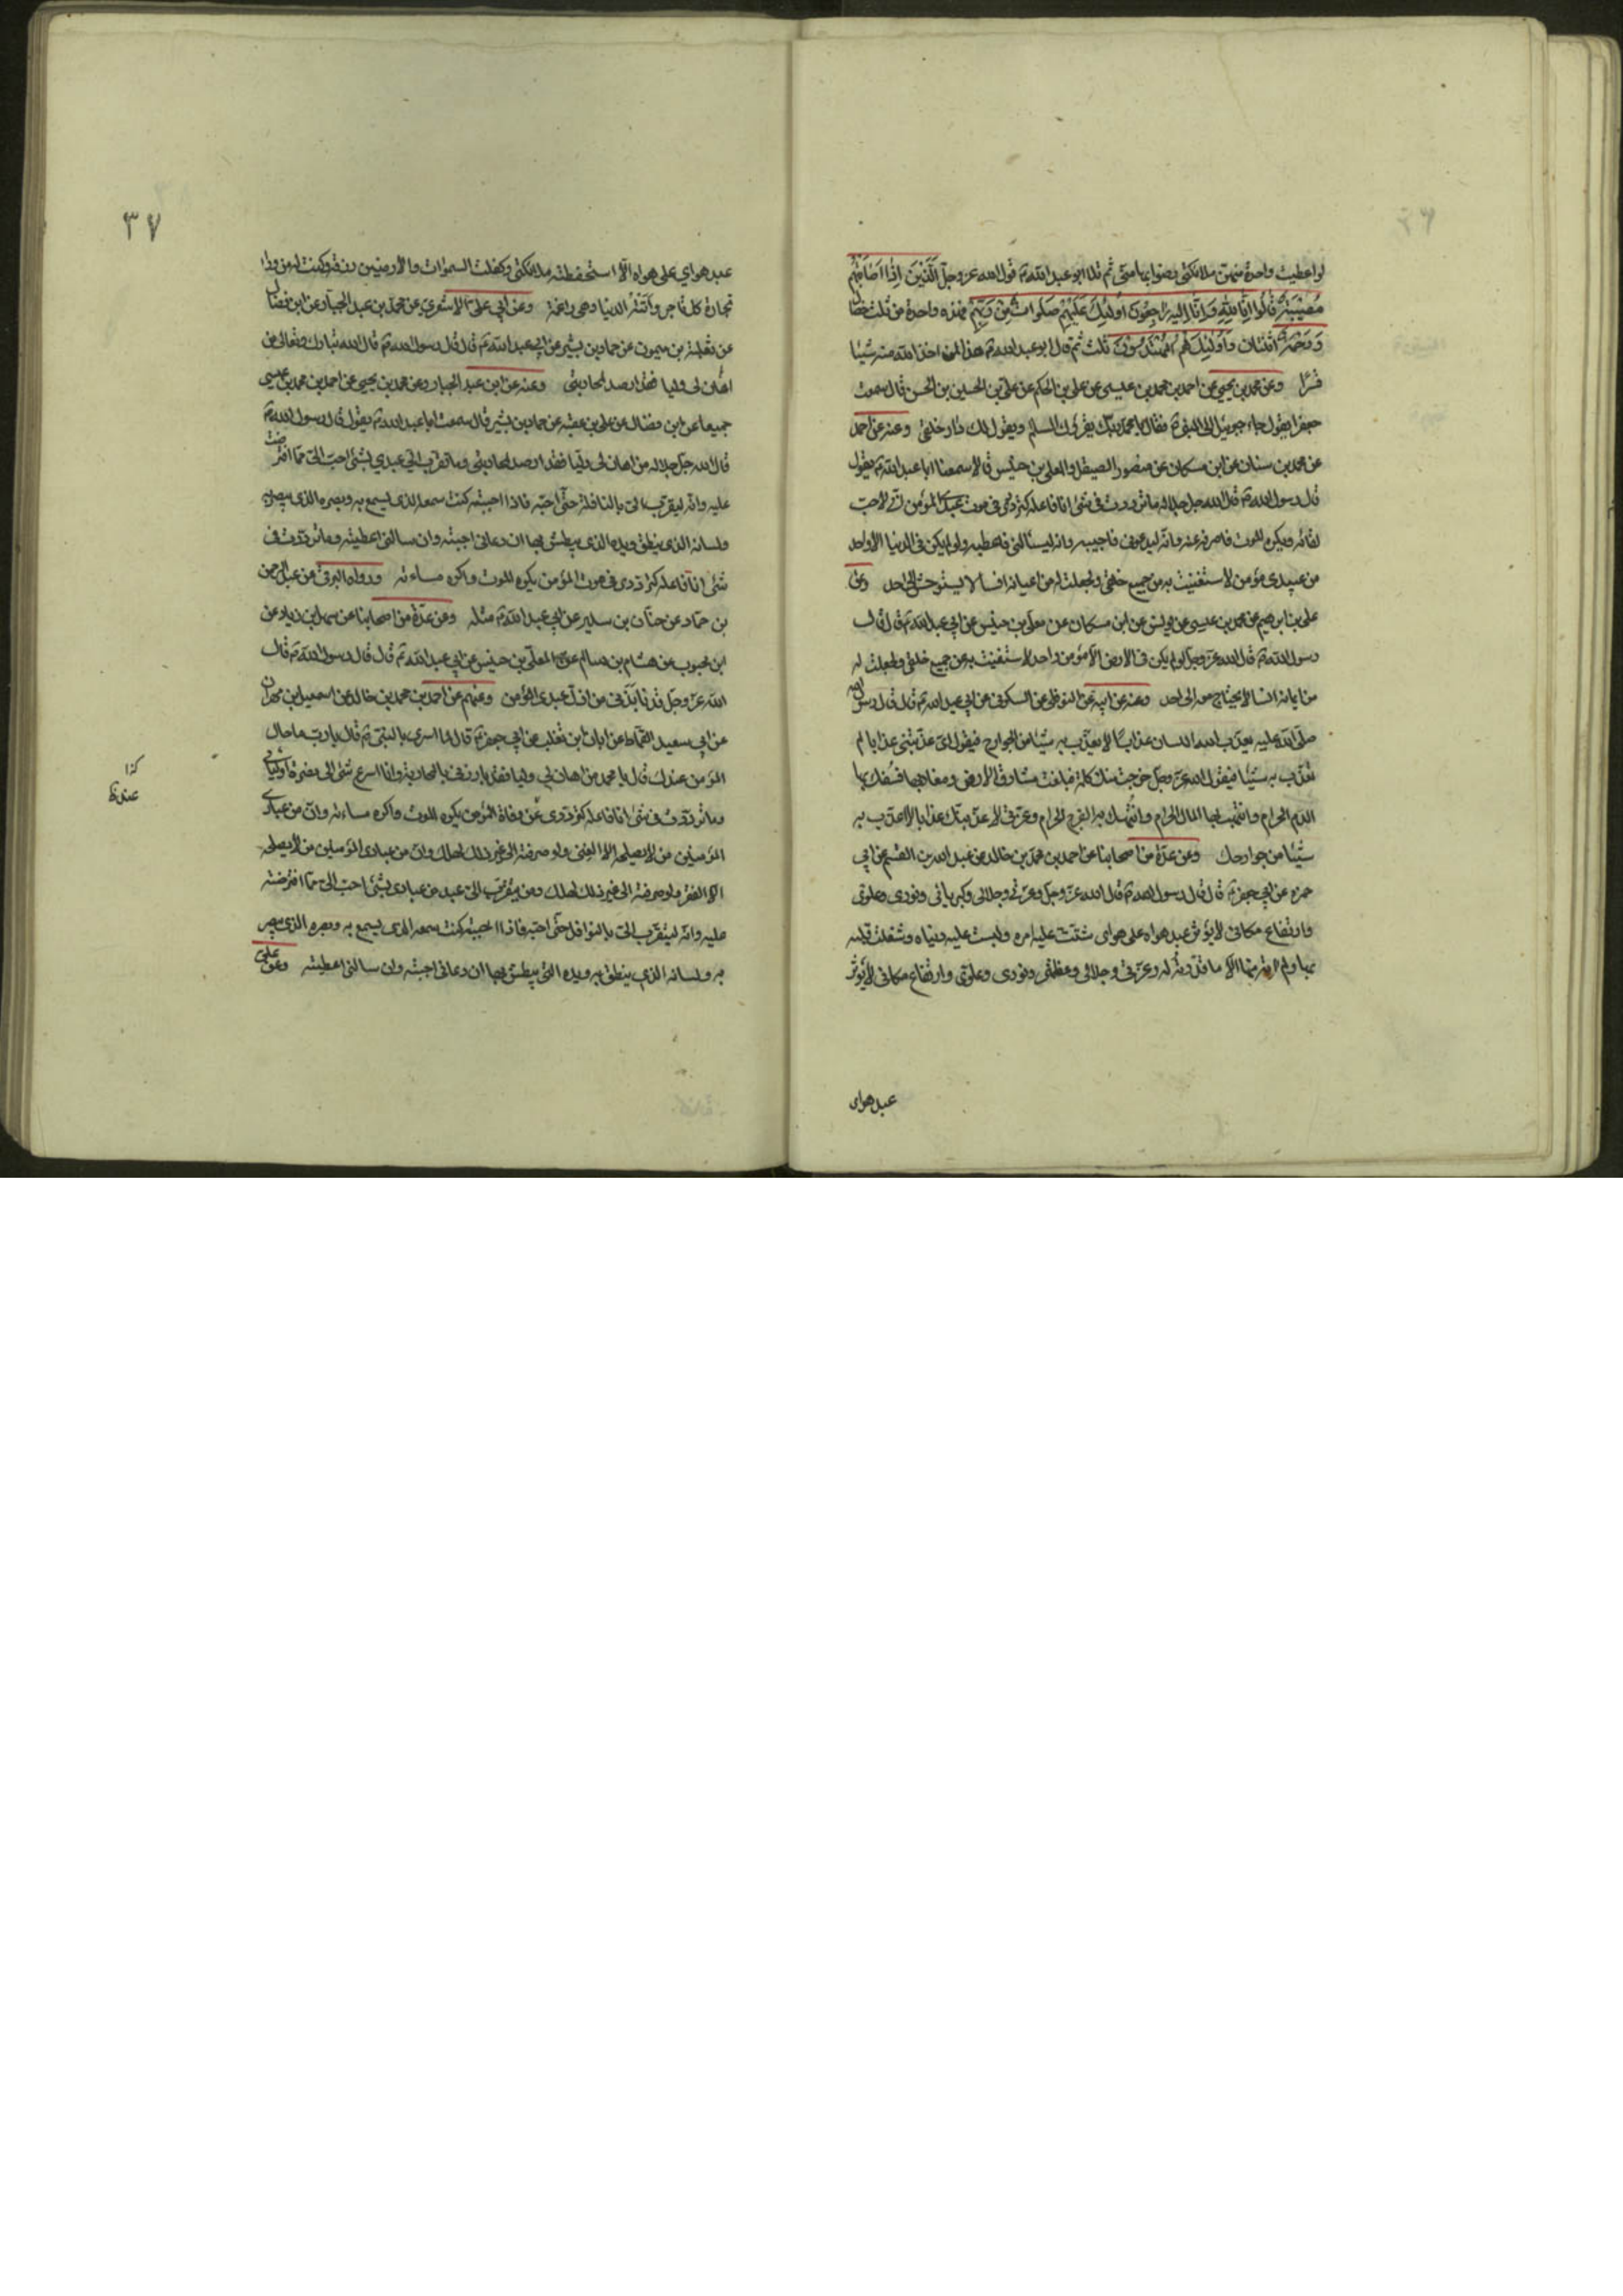 لو اعطيت واحدة منهن ملائكتي لرضوا بها مني ثم تلا ابو عبد الله ع قول الله عز وجل الَّذِينَ اِذَا اَصَابَتْهُمْ
مُصِيبَةٌ قَالُوا اِنَّا لِلّٰهِ وَاِنَّا اِلَيْهِ رَاجِعُونَ اُولٰئِكَ عَلَيْهِمْ صَلَوَاتٌ مِنْ رَبِّهِمْ فهذه واحدة من ثلث خصال
وَرَحْمَةٌ اثنتان وَاُولٰئِكَ هُمُ الْمُهْتَدُونَ ثلث ثم قال ابو عبد الله ع هذا لمن اخذ الله منه شيئا
قسرا وعن محمد بن يحيى عن احمد بن محمد بن عيسى عن علي بن الحكم عن علي بن الحسين بن الحسن قال سمعت
جعفرا يقول جاء جبرئيل الى النبي ص فقال يا محمد ربك يقرئك السلم ويقول لك دار خلقي وعنه عن احمد
عن محمد بن سنان عن ابن مسكان عن منصور الصيقل والمعلى بن خنيس قالا سمعنا ابا عبد الله ع يقول
قال رسول الله ص قال الله جل جلاله ما ترددت في شيء انا فاعله كترددي في موت عبدي المؤمن اني لاحب
لقائه ويكره الموت فاصرفه عنه وانه ليدعوني فاجيبه وانه ليسألني فاعطيه ولو لم يكن في الدنيا الا واحد
من عبيدي مؤمن لاستغنيت به من جميع خلقي ولجعلت له من ايمانه انسا لا يستوحش الى احد وعن
علي بن ابرهيم عن محمد بن عيسى عن يونس عن ابن مسكان عن معلى بن خنيس عن ابي عبد الله ع قال قال
رسول الله ص قال الله عز وجل لو لم يكن في الارض الا مؤمن واحد لاستغنيت به عن جميع خلقي ولجعلت له
من ايمانه انسا لا يحتاج معه الى احد وعنه عن ابيه عن النوفلي عن السكوني عن ابي عبد الله ع قال قال رسول الله
صلى الله عليه يعذب الله اللسان عذابا لا يعذب به شيئا من الجوارح فيقول اي عذبتني عذابا لم
تعذب به شيئا فيقول الله عز وجل خرجت منك كلمة فبلغت مشارق الارض ومغاربها فسفك بها
الدم الحرام وانتهب بها المال الحرام وانتهك به الفرج الحرام وعزتي لاعذبنك عذابا لا اعذب به
شيئا من جوارحك وعن عدة من اصحابنا عن احمد بن محمد بن خالد عن عبد الله بن القسم عن ابي
حمزة عن ابي جعفر ع قال قال رسول الله ص قال الله عز وجل وعزتي وجلالي وكبريائي ونوري وعلوي
وارتفاع مكاني لا يؤثر عبد هواه على هواي شتت عليه امره ولبست عليه دنياه وشغلت قلبه
بها ولم اوته منها الا ما قدرت له وعزتي وجلالي وعظمتي ونوري وعلوي وارتفاع مكاني لا يؤثر
عبد هواي
٣٧
عبد هواي على هواه الا استحفظته ملائكتي وكفلت السموات والارضين رزقه وكنت له من وراء
تجارة كل تاجر واتته الدنيا وهي راغمة وعن ابي علي الاشعري عن محمد بن عبد الجبار عن ابن فضال
عن ثعلبة بن ميمون عن حماد بن بشير عن ابي عبد الله ع قال قال رسول الله ص قال الله تبارك وتعالى من
اهان لي وليا فقد ارصد لمحاربتي وعنه عن ابن عبد الجبار وعن محمد بن يحيى عن احمد بن محمد بن عيسى
جميعا عن ابن فضال عن علي بن عقبه عن حماد بن بشير قال سمعت ابا عبد الله ع يقول قال رسول الله ص
قال الله جل جلاله من اهان لي وليا فقد ارصد لمحاربتي وما تقرب الي عبدي بشئ احب الي مما افترضت
عليه وانه ليتقرب الي بالنافلة حتى احبه فاذا احببته كنت سمعه الذي يسمع به وبصره الذي يبصر به
ولسانه الذي ينطق ويده الذي يبطش بها ان دعاني اجبته وان سالني اعطيته وما ترددت في
شئ انا فاعله كترددي في موت المؤمن يكره الموت واكره مساءته ورواه البرقي عن عبد الرحمن
بن حماد عن حنان بن سدير عن ابي عبد الله ع مثله وعن عدة من اصحابنا عن سهل بن زياد عن
ابن محبوب عن هشام بن سالم عن المعلى بن خنيس عن ابي عبد الله ع قال قال رسول الله ص قال
الله عز وجل قد نابذني من اذل عبدي المؤمن وعنهم عن احمد بن محمد بن خالد عن اسمعيل بن مهران
عن ابي سعيد القماط عن ابان بن تغلب عن ابي جعفر ع قال لما اسري بالنبي ص قال يا رب ما حال
المؤمن عندك قال يا محمد من اهان لي وليا فقد بارزني بالمحاربة وانا اسرع شئ الى نصرة اوليائي
وما ترددت في شئ انا فاعله كترددي عن وفاة المؤمن يكره الموت واكره مساءته وان من عبادي
المؤمنين من لا يصلحه الا الغنى ولو صرفته الى غير ذلك لهلك وان من عبادي المؤمنين من لا يصلحه
الا الفقر ولو صرفته الى غير ذلك لهلك وما يتقرب الي عبد من عبادي بشئ احب الي مما افترضته
عليه وانه ليتقرب الي بالنوافل حتى احبه فاذا احببته كنت سمعه الذي يسمع به وبصره الذي يبصر
به ولسانه الذي ينطق به ويده التي يبطش بها ان دعاني اجبته وان سالني اعطيته وعن علي
كذا